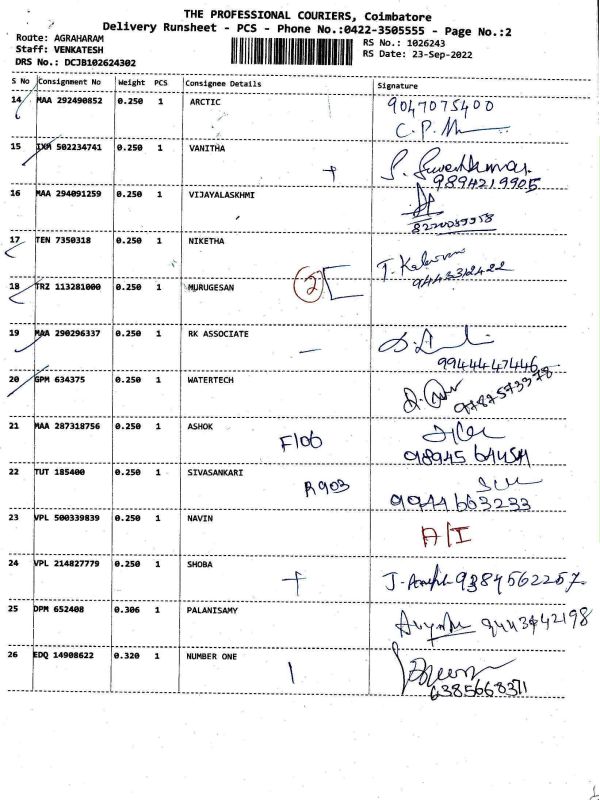 THE PROFESSIONAL COURIERS, Coimbatore
Delivery Runsheet - PCS - Phone No.:0422-3505555 - Page No.:2
Route: AGRAHARAM
Staff: VENKATESH
DRS No.: DCJB102624302
RS No.: 1026243
RS Date: 23-Sep-2022
S No Consignment No Weight PCS Consignee Details Signature
14 MAA 292490852 0.250 1 ARCTIC 9047075400
15 IXM 502234741 0.250 1 VANITHA + 9894219905
16 MAA 294091259 0.250 1 VIJAYALASKHMI
17 TEN 7350318 0.250 1 NIKETHA 9443312422
18 TRZ 113281000 0.250 1 MURUGESAN 2
19 MAA 290296337 0.250 1 RK ASSOCIATE 9944447446
20 GPM 634375 0.250 1 WATERTECH 9787573378
21 MAA 287318756 0.250 1 ASHOK F106
22 TUT 185400 0.250 1 SIVASANKARI R903 9944663233
23 VPL 500339839 0.250 1 NAVIN A/I
24 VPL 214827779 0.250 1 SHOBA + 9384562257
25 DPM 652408 0.306 1 PALANISAMY 9443942198
26 EDQ 14908622 0.320 1 NUMBER ONE 6385668371